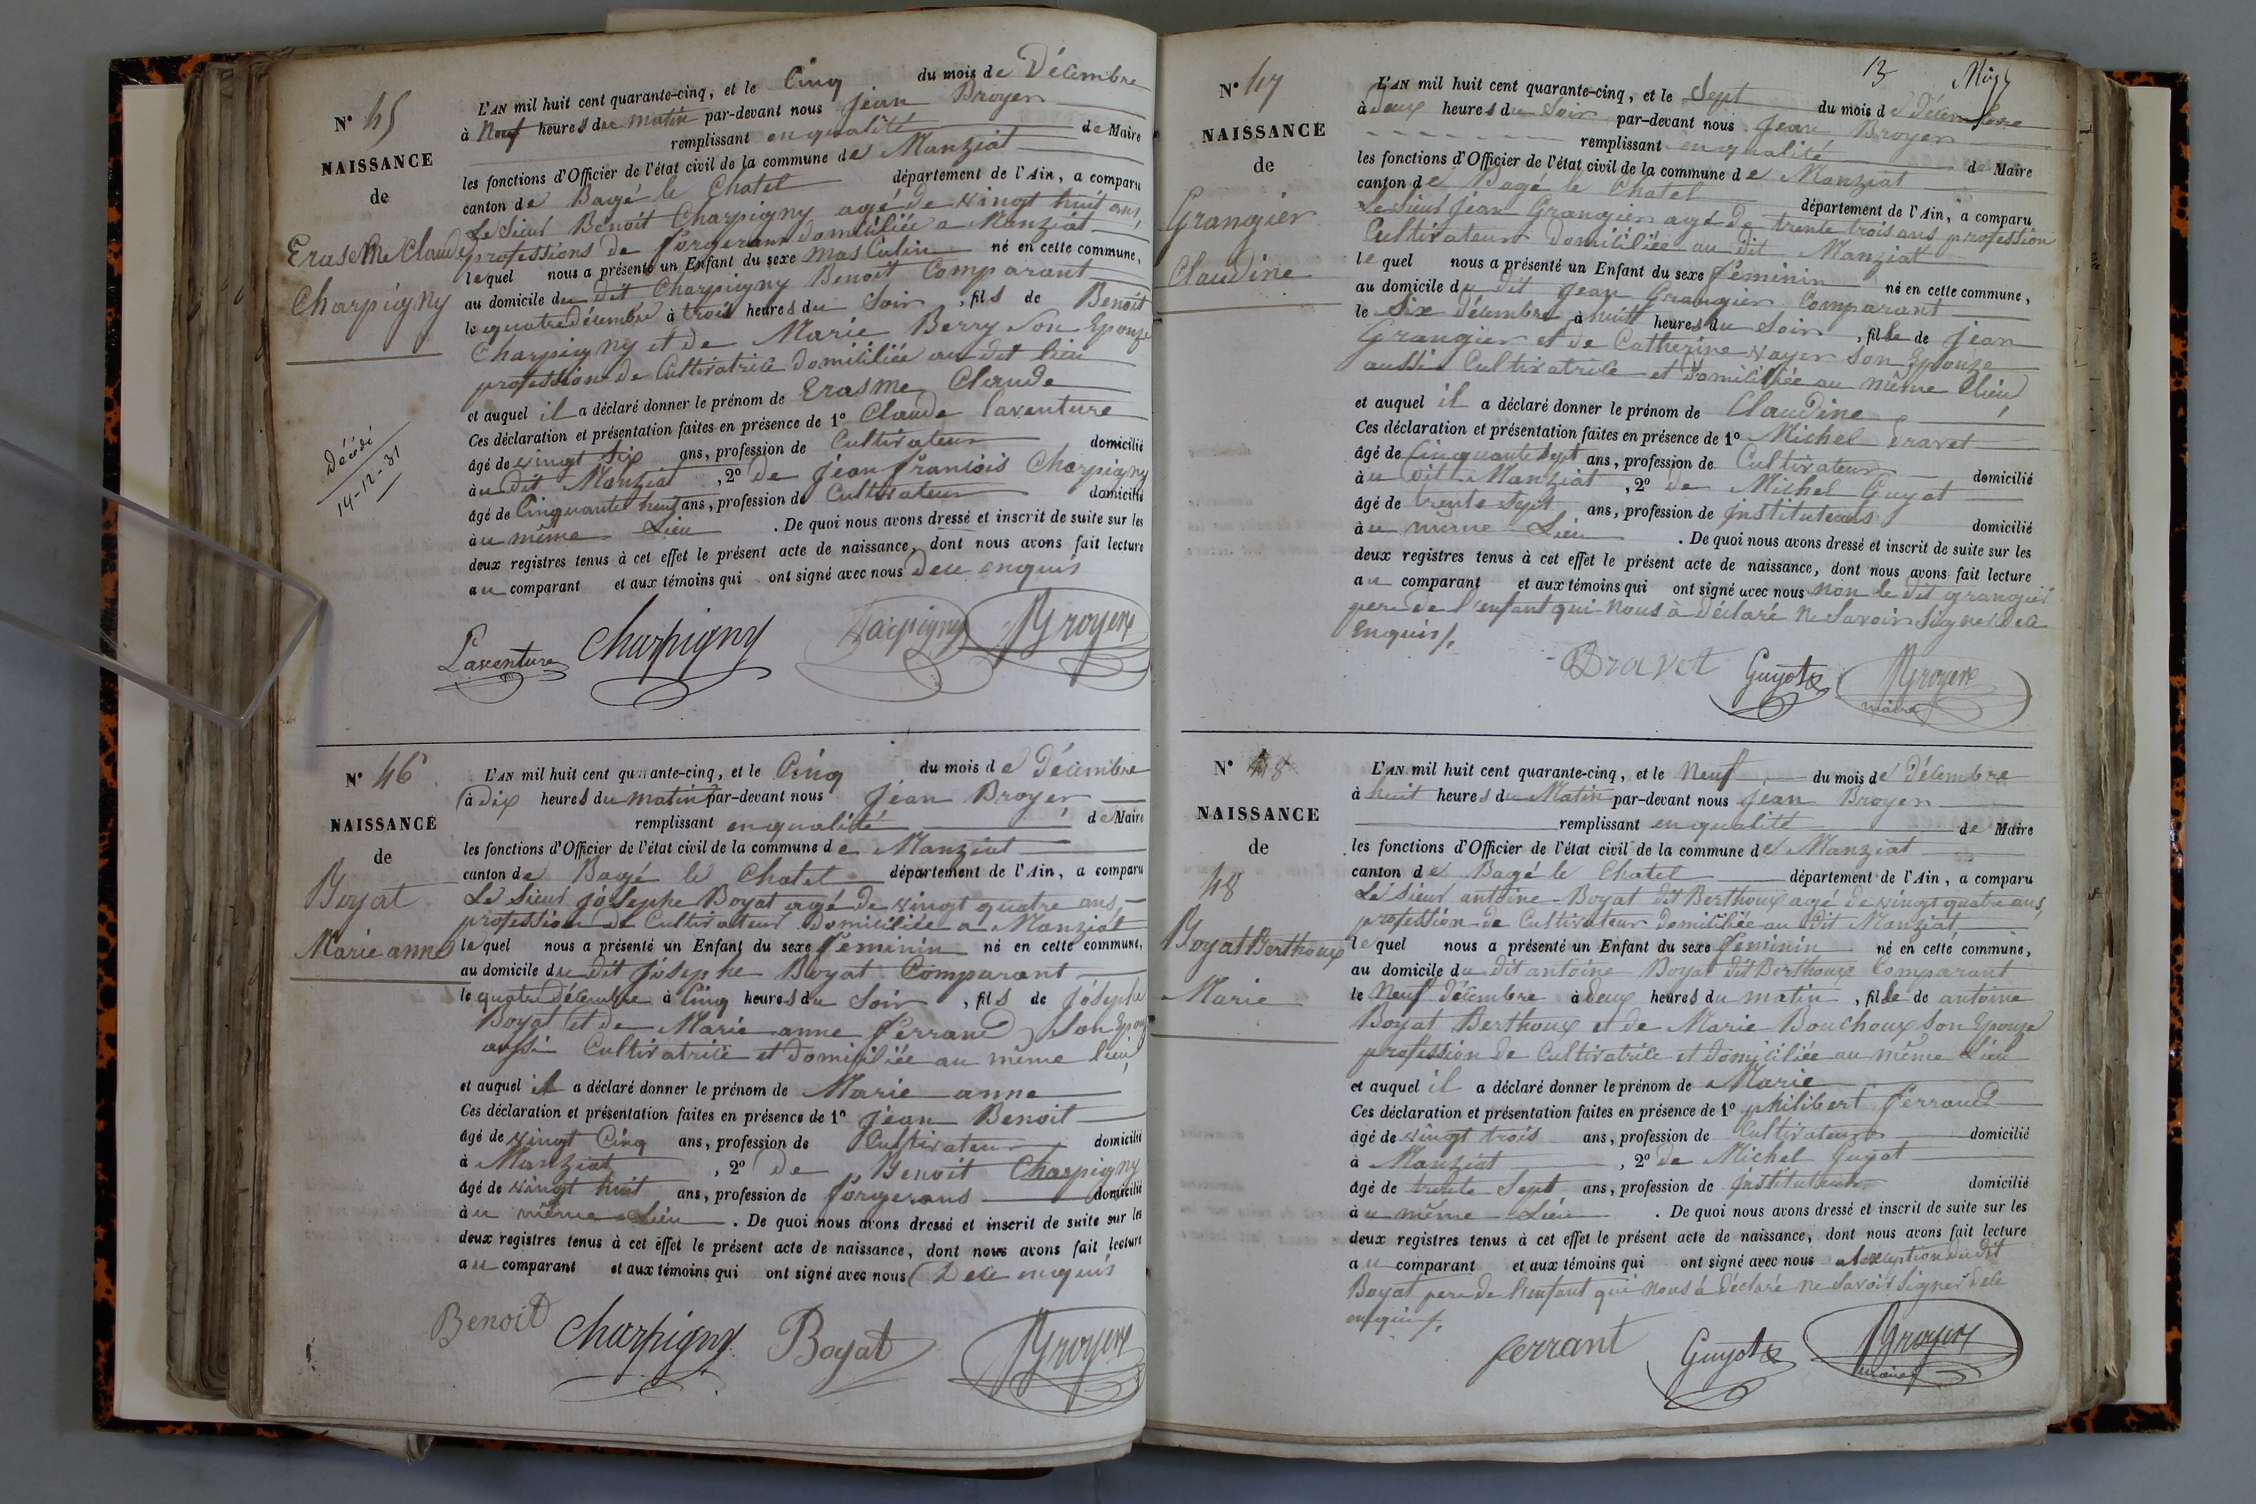 N° 45
NAISSANCE
de
Erasme Claude
Charpigny
Décédé
14-12-31
L'AN mil huit cent quarante-cinq, et le Cinq du mois de Décembre
à Neuf heures du matin par-devant nous Jean Broyer
remplissant en qualité de Maire
les fonctions d'Officier de l'état civil de la commune de Manziat
canton de Bagé le Chatel département de l'Ain, a comparu
Le Sieur Benoit Charpigny agé de vingt huit ans,
professions de forgerans domiciliée a Manziat
lequel nous a présenté un Enfant du sexe masculin né en cette commune,
au domicile du dit Charpigny Benoit Comparant
le quatre décembre à trois heures du Soir, fils de Benoit
Charpigny et de Marie Berry Son Epouze
profession de Cultivatrice domiciliée au dit lieu
et auquel il a déclaré donner le prénom de Erasme Claude
Ces déclaration et présentation faites en présence de 1° Claude Laventure
âgé de vingt six ans, profession de Cultivateur domicilié
à u dit Manziat, 2° de Jean francois Charpigny
âgé de Cinquante huit ans, profession de Cultivateur domicilié
à u même Lieu. De quoi nous avons dressé et inscrit de suite sur les
deux registres tenus à cet effet le présent acte de naissance, dont nous avons fait lecture
au comparant et aux témoins qui ont signé avec nous Dece enquis
Laventure Charpigny Charpigny Broyer
N° 46
NAISSANCE
de
Boyat
Marie anne
L'AN mil huit cent quarante-cinq, et le Cinq du mois de Décembre
à dix heures du matin par-devant nous Jean Broyer
remplissant en qualité de Maire
les fonctions d'Officier de l'état civil de la commune de Manziat
canton de Bagé le Chatel département de l'Ain, a comparu
Le Sieur Joseph Boyat agé de vingt quatre ans,
profession de Cultivateur Domiciliée a Manziat
lequel nous a présenté un Enfant du sexe féminin né en cette commune,
au domicile du dit Josephe Boyat Comparant
le quatre Décembre à Cinq heures du Soir, fils de Josephe
Boyat et de Marie anne ferrand Son Epouz
aussi Cultivatrice et domiciliée au même lieu,
et auquel il a déclaré donner le prénom de Marie anne
Ces déclaration et présentation faites en présence de 1° Jean Benoit
âgé de vingt Cinq ans, profession de Cultivateur domicilié
à Manziat, 2° de Benoit Charpigny
âgé de vingt huit ans, profession de forgerans domicilié
à u même Lieu. De quoi nous avons dressé et inscrit de suite sur les
deux registres tenus à cet effet le présent acte de naissance, dont nous avons fait lecture
au comparant et aux témoins qui ont signé avec nous Dece enquis
Benoit Charpigny Boyat Broyer
13
N° 47
NAISSANCE
de
Grangier
Claudine
L'AN mil huit cent quarante-cinq, et le Sept du mois de décembre
à deux heures du Soir par-devant nous Jean Broyer
remplissant en qualité de Maire
les fonctions d'Officier de l'état civil de la commune de Manziat
canton de Bagé le Chatel département de l'Ain, a comparu
Le Sieur Jean Grangier agé de trente trois ans profession
Cultivateur domiciliée au dit Manziat
lequel nous a présenté un Enfant du sexe féminin né en cette commune,
au domicile du dit Jean Grangier Comparant
le Six décembre à huit heures du Soir, fille de Jean
Grangier et de Catherine Vayer son Epouze
aussi Cultivatrice et domiciliée au même Lieu,
et auquel il a déclaré donner le prénom de Claudine
Ces déclaration et présentation faites en présence de 1° Michel Dravet
âgé de Cinquante Sept ans, profession de Cultivateur domicilié
à u dit Manziat, 2° de Michel Guyot
âgé de trente Sept ans, profession de Instituteurs domicilié
à u même Lieu. De quoi nous avons dressé et inscrit de suite sur les
deux registres tenus à cet effet le présent acte de naissance, dont nous avons fait lecture
au comparant et aux témoins qui ont signé avec nous non le dit grangier
pere de l'enfant qui nous à déclaré ne Savoir Signer Dece
Enquis/.
Dravet Guyot Broyer
maire
N° 48
NAISSANCE
de
48
Boyat Berthoux
Marie
L'AN mil huit cent quarante-cinq, et le Neuf du mois de Décembre
à huit heures du Matin par-devant nous Jean Broyer
remplissant en qualité de Maire
les fonctions d'Officier de l'état civil de la commune de Manziat
canton de Bagé le Chatel département de l'Ain, a comparu
Le Sieur antoine Boyat dit Berthoux agé de vingt quatre ans,
profession de Cultivateur domiciliée au dit Manziat
lequel nous a présenté un Enfant du sexe féminin né en cette commune,
au domicile du dit antoine Boyat dit Berthoux Comparant
le Neuf décembre à deux heures du matin, fille de antoine
Boyat Berthoux et de Marie Bouchoux son Epouze
profession de Cultivatrice et domiciliée au même Lieu
et auquel il a déclaré donner le prénom de Marie
Ces déclaration et présentation faites en présence de 1° philibert ferrand
âgé de vingt trois ans, profession de Cultivateur domicilié
à Manziat, 2° de Michel Guyot
âgé de trente Sept ans, profession de Instituteur domicilié
à u même Lieu. De quoi nous avons dressé et inscrit de suite sur les
deux registres tenus à cet effet le présent acte de naissance, dont nous avons fait lecture
au comparant et aux témoins qui ont signé avec nous a l'exeption du dit
Boyat pere de l'enfant qui nous à déclaré ne Savoir Signer Dece
enquis/.
ferrant Guyot Broyer
maire